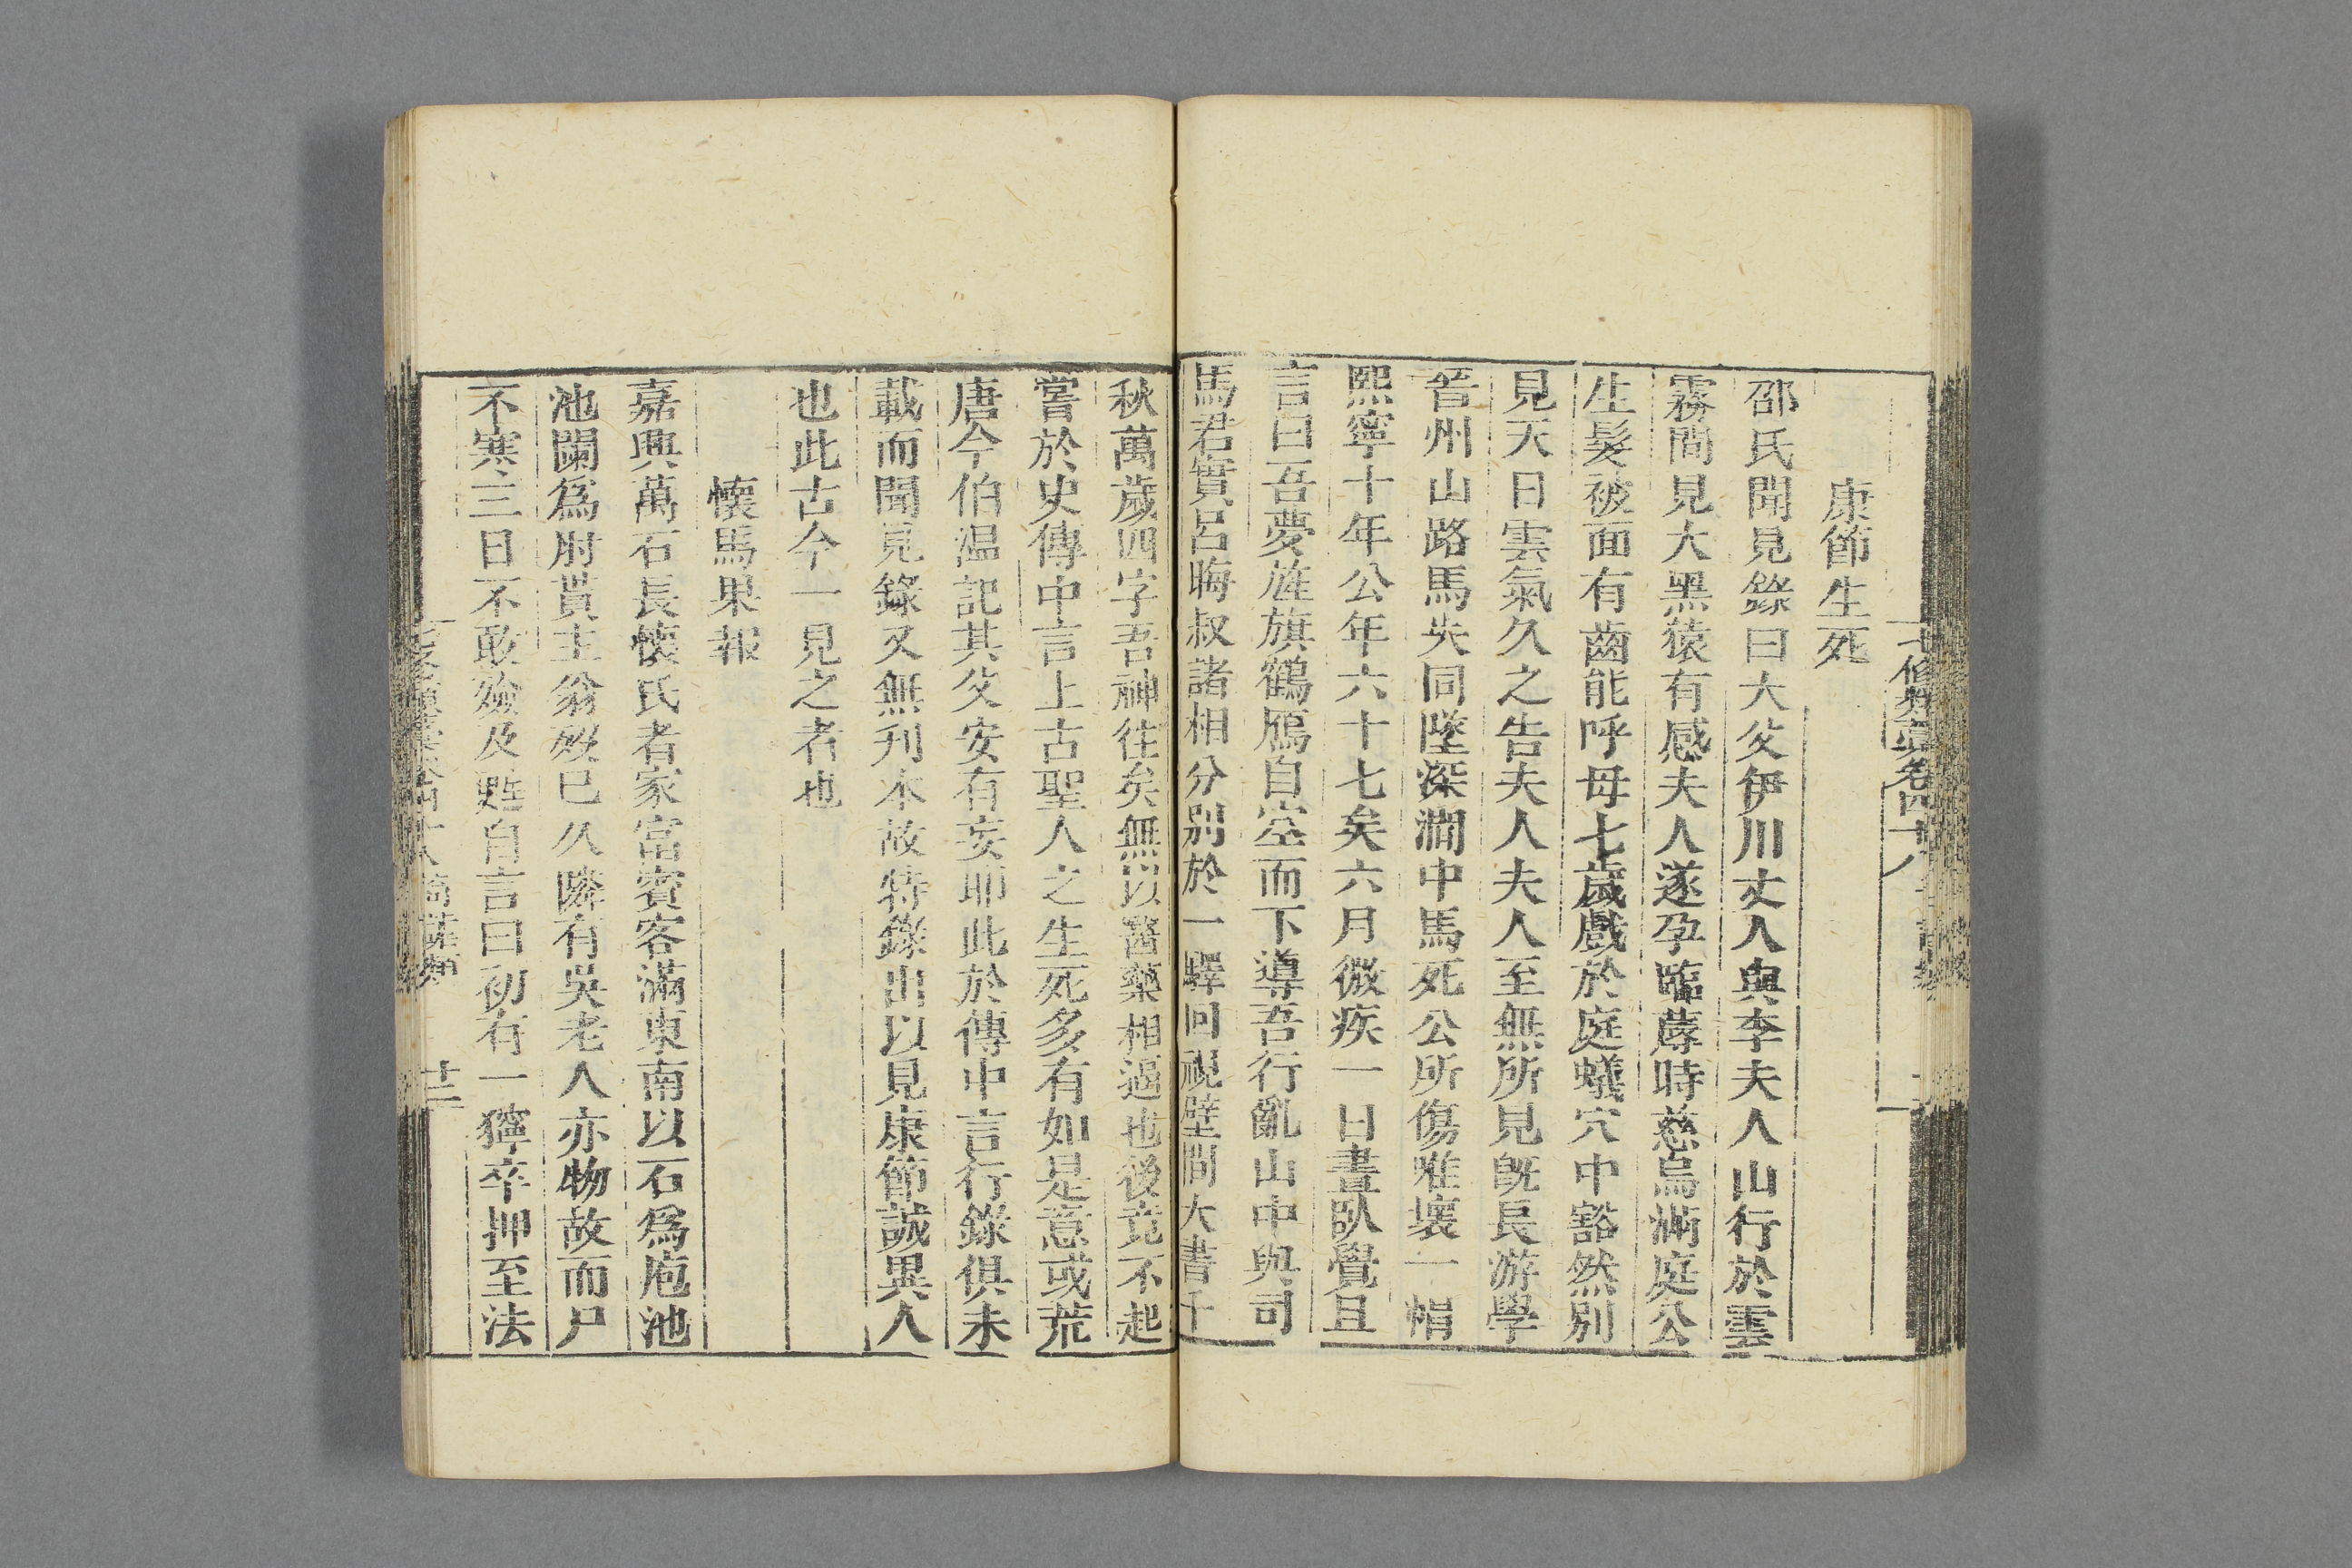 七修類藁卷四十八
康節生死
邵氏聞見錄曰大父伊川丈人與李夫人山行於雲
霧間見大黑猿有感夫人遂孕臨蓐時慈烏滿庭公
生髮被面有齒能呼母七歲戲於庭蟻穴中豁然別
見天日雲氣久之告夫人夫人至無所見旣長游學
晉州山路馬失同墜深澗中馬死公所傷唯壞一㡌
熙寧十年公年六十七矣六月微疾一日晝臥覺且
言曰吾夢旌旗鶴鴈自空而下導吾行亂山中與司
馬君實呂晦叔諸相分別於一驛回視壁間大書千
秋萬歲四字吾神往矣無以醫藥相逼也後竟不起
嘗於史傳中言上古聖人之生死多有如是意或荒
唐今伯温記其父安有妄耶此於傳中言行錄俱未
載而聞見錄又無刋本故特錄出以見康節誠異人
也此古今一見之者也
懷馬果報
嘉興萬石長懷氏者家富賓客滿東南以石爲庖池
池闌爲肘貰主翁殁巳久隣有吳老人亦物故而尸
不寒三日不敢殮及甦自言曰初有一獰卒押至法